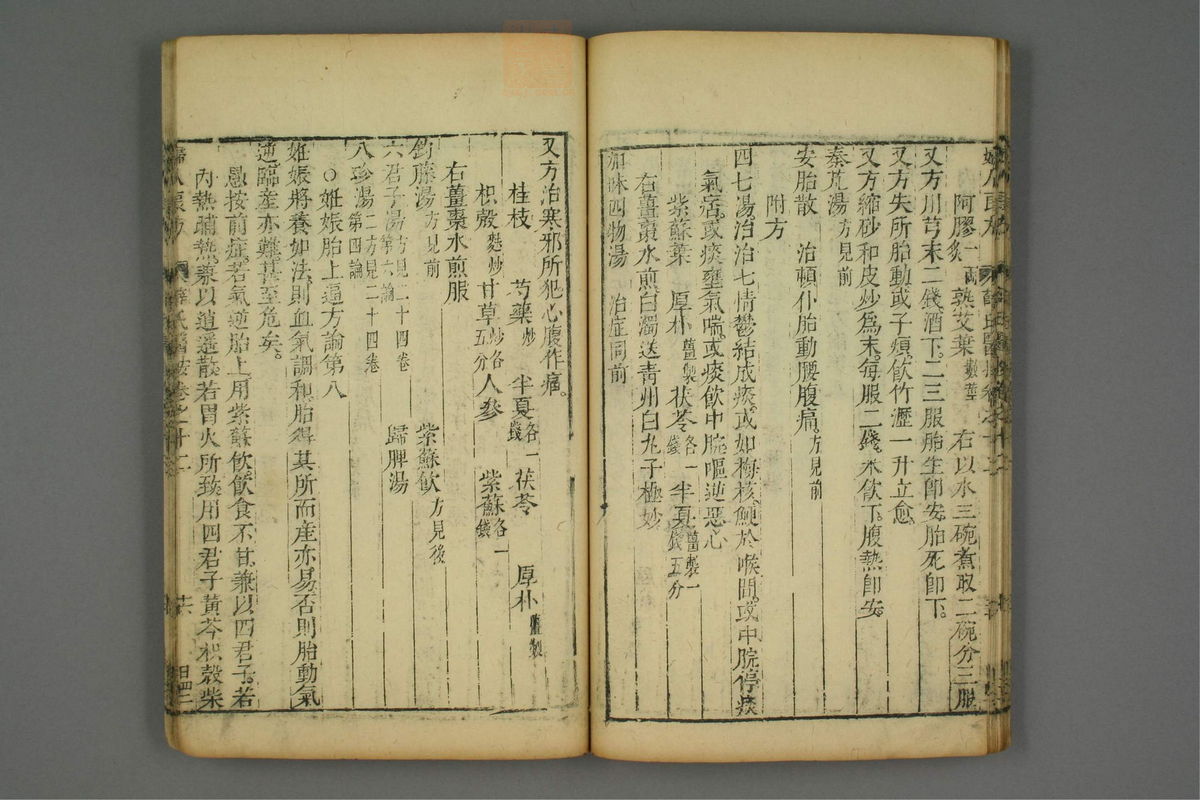 阿膠炙一兩 熟艾葉數莖 右以水三碗煮取二碗分三服
又方川芎末二錢酒下二三服胎生卽安胎死卽下
又方失所胎動或子煩飲竹瀝一升立愈
又方縮砂和皮炒爲末每服二錢米飲下腹熱卽安
秦艽湯方見前
安胎散 治頓仆胎動腰腹痛方見前
附方
四七湯治治七情鬱結成痰或如梅核鯁於喉間或中脘停痰
氣痞或痰壅氣喘或痰飲中脘嘔逆惡心
紫蘇葉 厚朴薑製 茯苓各一錢 半夏薑製一錢五分
右薑棗水煎白濁送青州白丸子極妙
加味四物湯 治症同前
又方治寒邪所犯心腹作痛
桂枝 芍藥炒 半夏各一錢 茯苓 厚朴薑製
枳殼麩炒 甘草炒各五分 人參 紫蘇各一錢
右薑棗水煎服
鈎藤湯方見前 紫蘇飲方見後
六君子湯方見二十四卷第六論 歸脾湯
八珍湯二方見二十四卷第四論
○妊娠胎上逼方論第八
妊娠將養如法則血氣調和胎得其所而産亦易否則胎動氣
逆臨産亦難甚至危矣
愚按前症若氣逆胎上用紫蘇飲飲食不甘兼以四君子若
內熱晡熱兼以逍遥散若胃火所致用四君子黃芩枳殼柴
薛氏醫按卷之十二